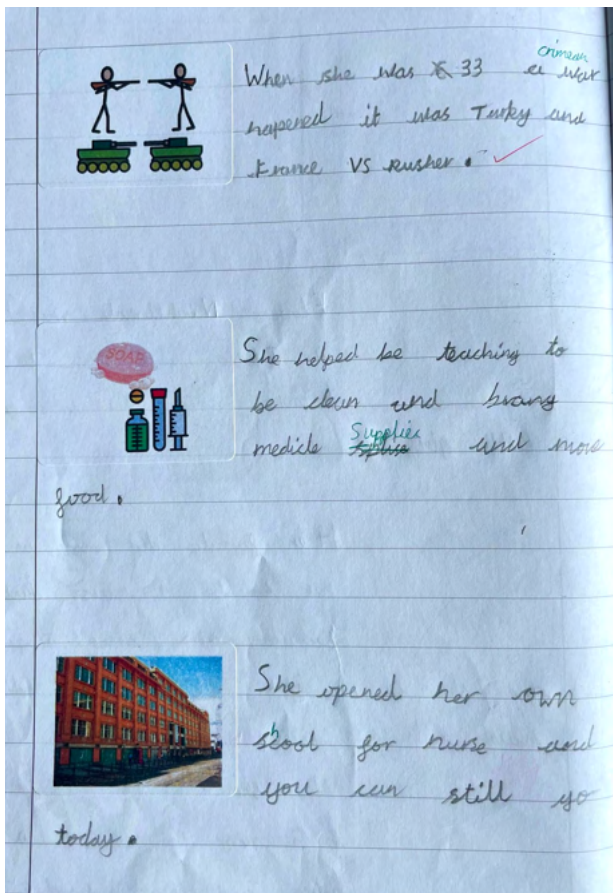 crimean
When she was 33 a war
hapened it was Turky and
France VS Rusher.
SOAP
She helped be teaching to
be clean and brang
medicle Supplies and more
food.
She opened her own
school for nurse and
you can still go
today.